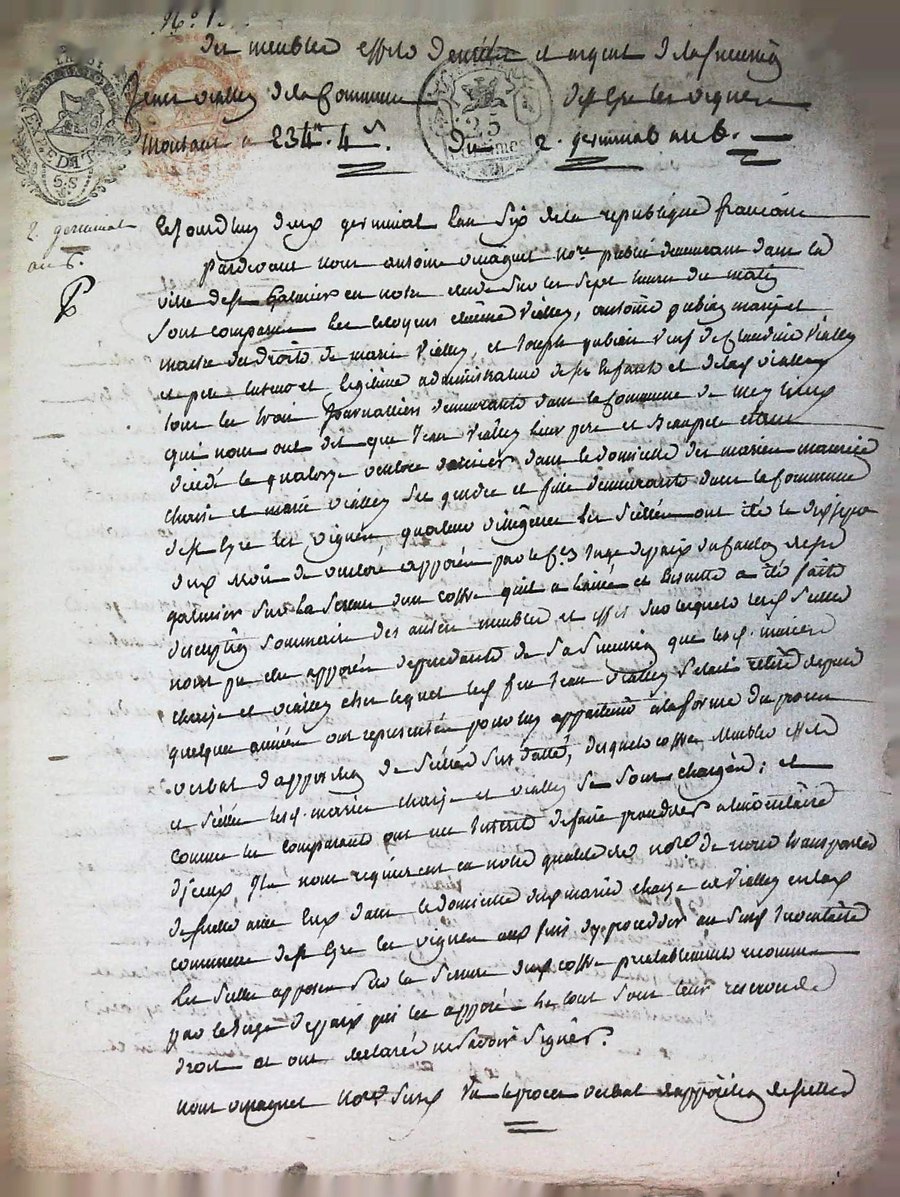 N° 1.
des meubles effets denrées et argent de la succession
Jean vialley de la Commune de st Cyre les vignes
Montant a 234tt 4s. Du 2. germinal an 6.
25
Centimes
5.5
2. germinal
an 6.
Cejourdhuy deux germinal l'an Six de la republique francaise
Pardevant nous antoine nore public demeurant dans la
ville de st galmier en notre etude Sur les Sept heures du matin
Sont comparus les Citoyens etienne Vialley, antoine mary et
maitre des droits de marie Vialley, et Joseph veuf de Claudine Vialley
et pere et legitime administrateur de ses Enfants et de lad. vialley
tous les trois Journalliers demeurants dans la Commune de
qui nous ont dit que Jean Vialley leur pere et Beaupere etant
décédé le quatorze ventose dernier dans le domicille des maries maurice
et marie vialley Ses gendre et fille demeurants dans la Commune
de st Cyre les vignes, les Scellés ont été le dix sept
dud. mois de ventose apposés par le Cen Juge de paix du Canton de st
galmier Sur la Serrure d'un coffre quil a laissé et Ensuitte a été faite
description Sommaire des autres meubles et effets Sur lesquels les Scellés
nont pu etre apposés dependants de Sa Succession que lesd. maries
et vialley chez lequel led. feu Jean Vialley S'etait retiré depuis
quelques années ont representés pour luy appartenir a la forme du proces
verbal d'apposition de Scellés Sus datté, desquels coffre Meubles effets
et Scellés lesd. maries et vialley Se Sont chargés; et
comme les comparants ont un Interet de faire proceder a linventaire
d'Jceux, Ils nous requierent en notre qualité de nore de nous transporter
de Suitte avec Eux dans le domicille dud. maries et Vialley en lad.
commune de st Cyre les vignes aux fins d'y proceder au Susd. Inventaire
les Scellés apposés Sur la Serrure dud. coffre prealablement reconnus
par le Juge de paix qui les a apposés le tout Sous leur reserve de
droit et ont declarés ne Savoir Signer.
nous nore Susd. Vu le proces verbal d'apposition de Scellés